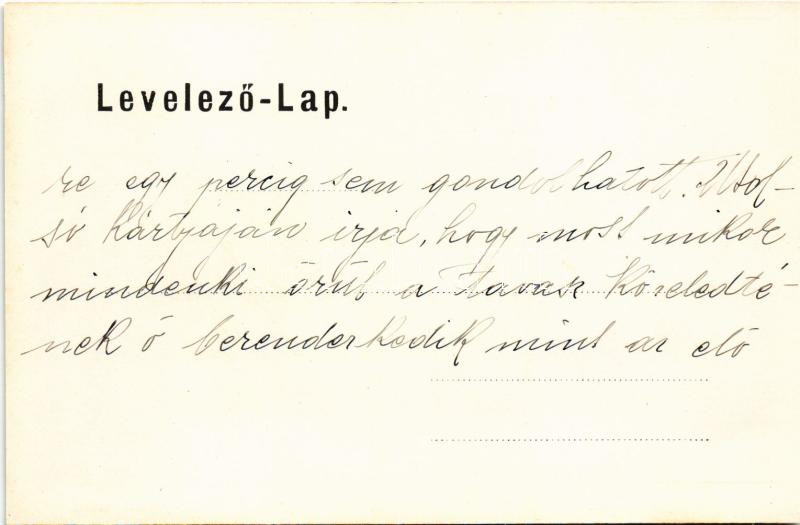 Levelező-Lap.
re egy percig sem gondolhatott. Utol-
só kártyáján irja, hogy most mikor
mindenki örül a tavasz közeledté-
nek ő berenderkedik mint az elő